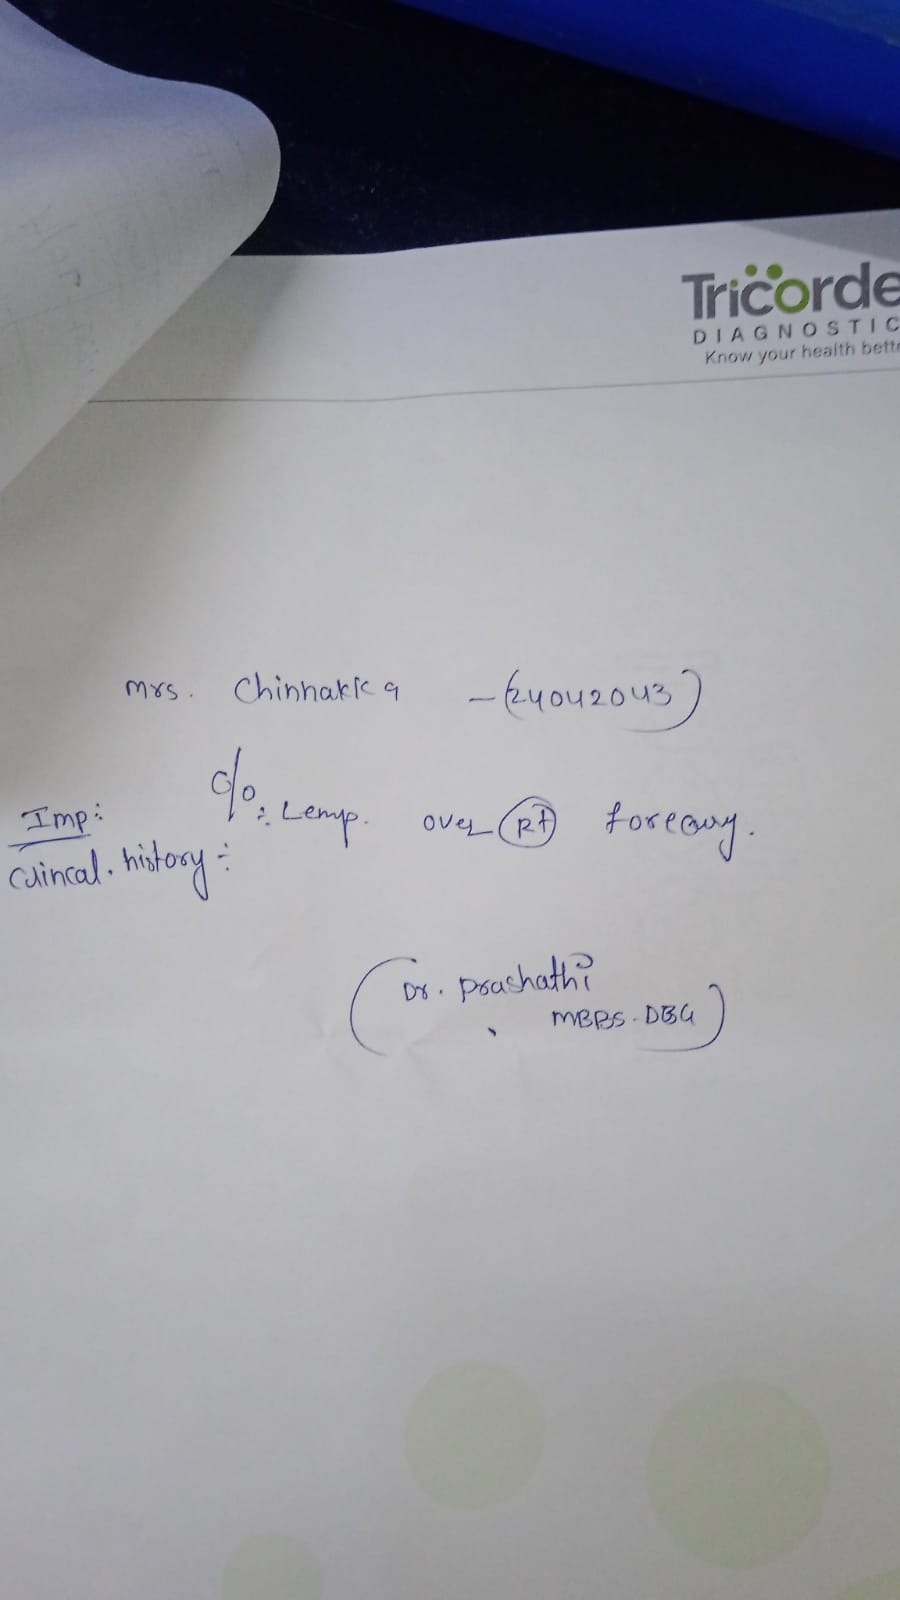 Tricorde
DIAGNOSTIC
Know your health bette
Mrs. Chinnakka -(24042043)
Imp: c/o: Lemp. over Rt forearm.
Clincal. history:
(Dr. Prashathi
MBBS. DGO)